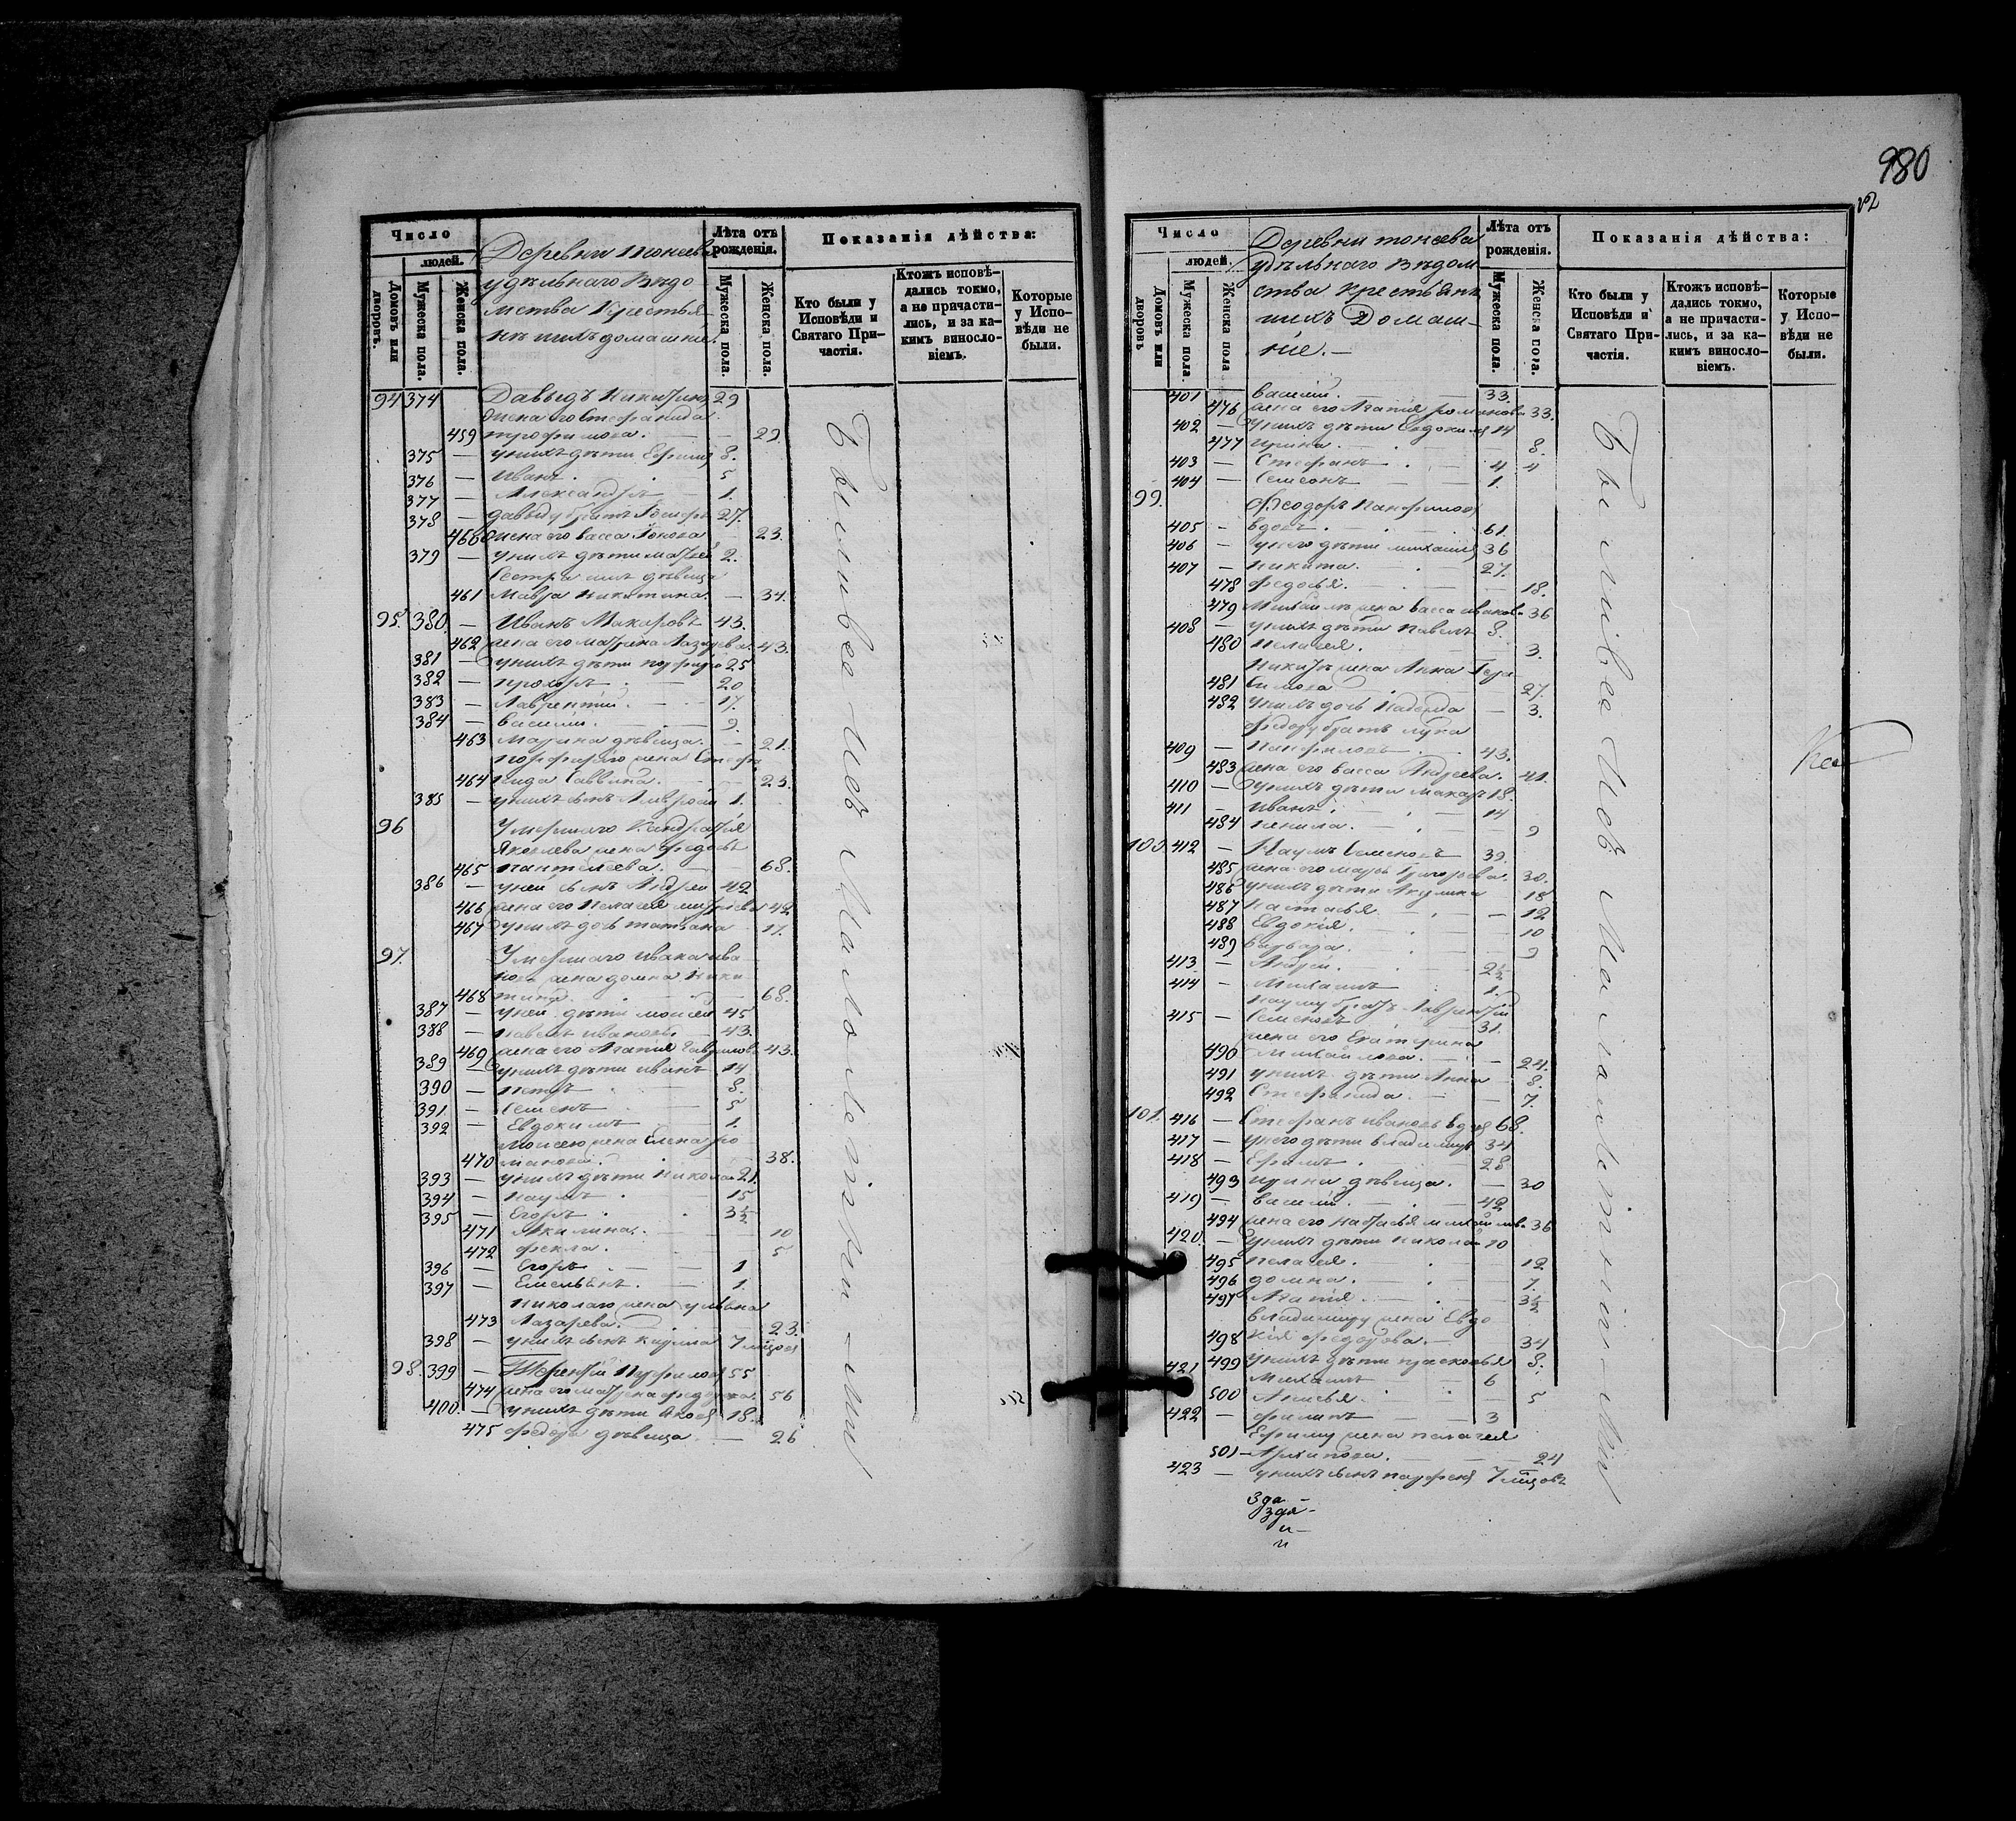 980
Число
людей.
Домовъ или дворовъ.
Мужеска пола.
Женска пола.
Деревни
удѣльнаго Вѣдо
мства Крестья
не ихъ домашніе
Лѣта отъ рожденія.
Мужеска пола.
Женска пола.
Показанія дѣйства:
Кто были у Исповѣди и Святаго Причастія.
Ктожъ исповѣдались токмо, а не причастились, и за какимъ винословіемъ.
Которые у Исповѣди не были.
94 374 Давыдъ Никитинъ 29
жена его Стефанида
459 трофимова. 29
375 у нихъ дѣти Ефимъ 8.
376 Иванъ 5
377 Александръ 1.
378 давыду братъ 27.
460 жена его Васса 23.
379 у нихъ дѣти Матвѣй 2.
Сестра ихъ дѣвица
461 Мавра Никитина. 34.
95. 380 Иванъ Макаровъ 43.
462 жена его Матрена Лазарева 43.
381 у нихъ дѣти порфирій 25
382 прохоръ 20
383 Лаврентій. 17.
384 василій. 9.
463 Марина дѣвица. 21.
порфирію жена Стефа
464 нида Саввина. 25.
385 у нихъ сынъ 1.
96 Умершаго Кандратія
Яковлева жена федосья
465 пантелеева. 68.
386 у ней сынъ Андрей 42
466 жена его Пелагея 42
467 у нихъ дочь татьяна 17.
97. Умершаго ивана ива
нова жена домна Ники
468 тина. 68.
387 у ней дѣти моисей 45
388 павелъ ивановъ. 43.
469 жена его Агапія Гаврилова 43.
389 у нихъ дѣти иванъ 14
390 петръ 8.
391 Семенъ 5
392 Евдокимъ 1.
Моисею жена Елена ро
470 манова. 38.
393 у нихъ дѣти Николай 21.
394 наумъ 15
395 Егоръ 3½
471 Акилина. 10
472 фекла. 5
396 Егоръ 1
397 Емельянъ. 1.
Николаю жена ульяна
473 Лазарева. 23.
398 у нихъ сынъ кирила 7 мѣцовъ
98. 399 Терентій 55
474 жена его матрена федорова. 56
400. у нихъ дѣти Яковъ 18.
475 федора дѣвица 26
Число
людей.
Домовъ или дворовъ
Мужеска пола.
Женска пола
Деревни тонеева
удѣльнаго Вѣдом
ства Крестьяне
ихъ Домаш
ніе.
Лѣта отъ рожденія.
Мужеска пола.
Женска пола.
Показанія дѣйства:
Кто были у Исповѣди и Святаго Причастія.
Ктожъ исповѣдались токмо, а не причастились, и за какимъ винословіемъ.
Которые у Исповѣди не были.
401 василій. 33.
476 жена его Агапія романова 33.
402 у нихъ дѣти Евдокимъ 14
477 ирина. 8.
403 Стефанъ 4 4
404 Семеонъ 1.
99. Феодоръ Панфиловъ
405 вдовъ. 61.
406 у него дѣти михаилъ 36
407 никита. 27.
478 федосья. 18.
479 Михаилѣ жена васса иванова 36
408 у нихъ дѣти павелъ 8.
480 пелагея. 3.
Никитѣ жена Анна Гера
481 симова 27.
482 у нихъ дочь Надежда 3.
федору братъ лука
409 панфиловъ 43.
483 жена его васса Андреева. 41.
410 у нихъ дѣти макаръ 18.
411 иванъ 14
484 ненила. 9
100. 412 Наумъ Семеновъ 39.
485 жена его марья Григорьева. 39.
486 у нихъ дѣти Акулина 18
487 Настасья 12
488 Евдокія. 10
489 варвара. 9
413 Андрей. 2½
414 Михаилъ 1.
Науму братъ Лаврентій
415 Семеновъ 31.
жена его Екатерина
490 Михайлова. 24.
491 у нихъ дѣти Анна 8.
492 Стефанида. 7.
101. 416 Стефанъ ивановъ вдовъ 68.
417 у него дѣти владимиръ 34
418 Ефимъ 28
493 ирина дѣвица. 30
419 василій. 42
494 жена его Настасья михайлова 36
420. у нихъ дѣти николай 10
495 пелагея. 12
496 домна. 7.
497 Агапія. 3½
владимиру жена Евдо
498 кія федорова. 34
499 у нихъ дѣти прасковья 8.
421 Михаилъ 6
500 Анисья. 5
422 филипъ 3
Ефиму жена пелагея
501 Архипова. 24
423 у нихъ сынъ 7 мѣцовъ